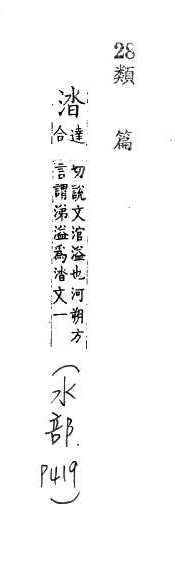 28類篇
涾達合切說文涫溢也河朔方言謂沸溢爲涾文一
(水部.P419)